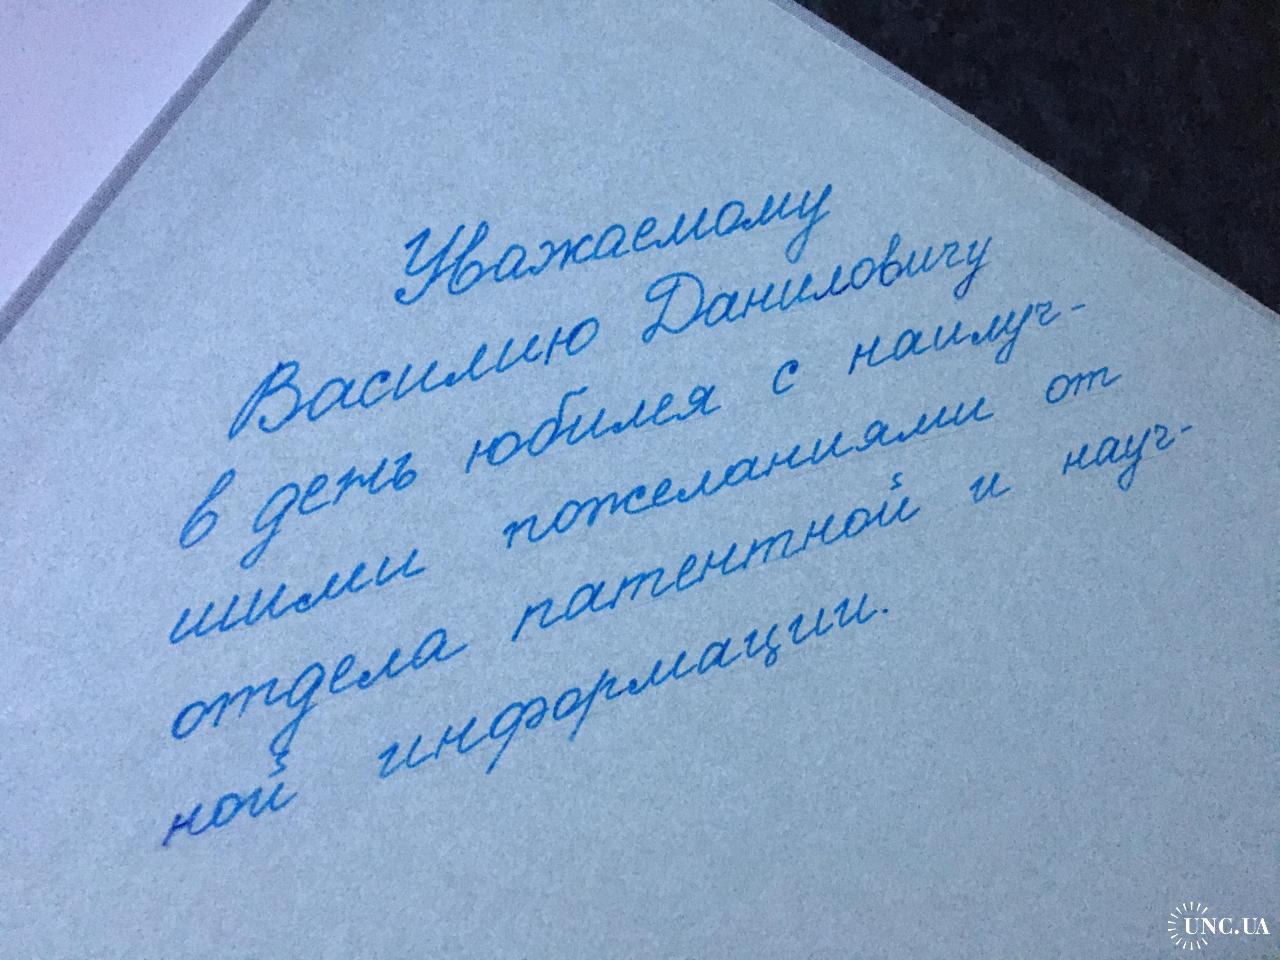 Уважаемому
Василию Даниловичу
в день юбилея с наилуч-
шими пожеланиями от
отдела патентной и науч-
ной информации.
UNC.UA